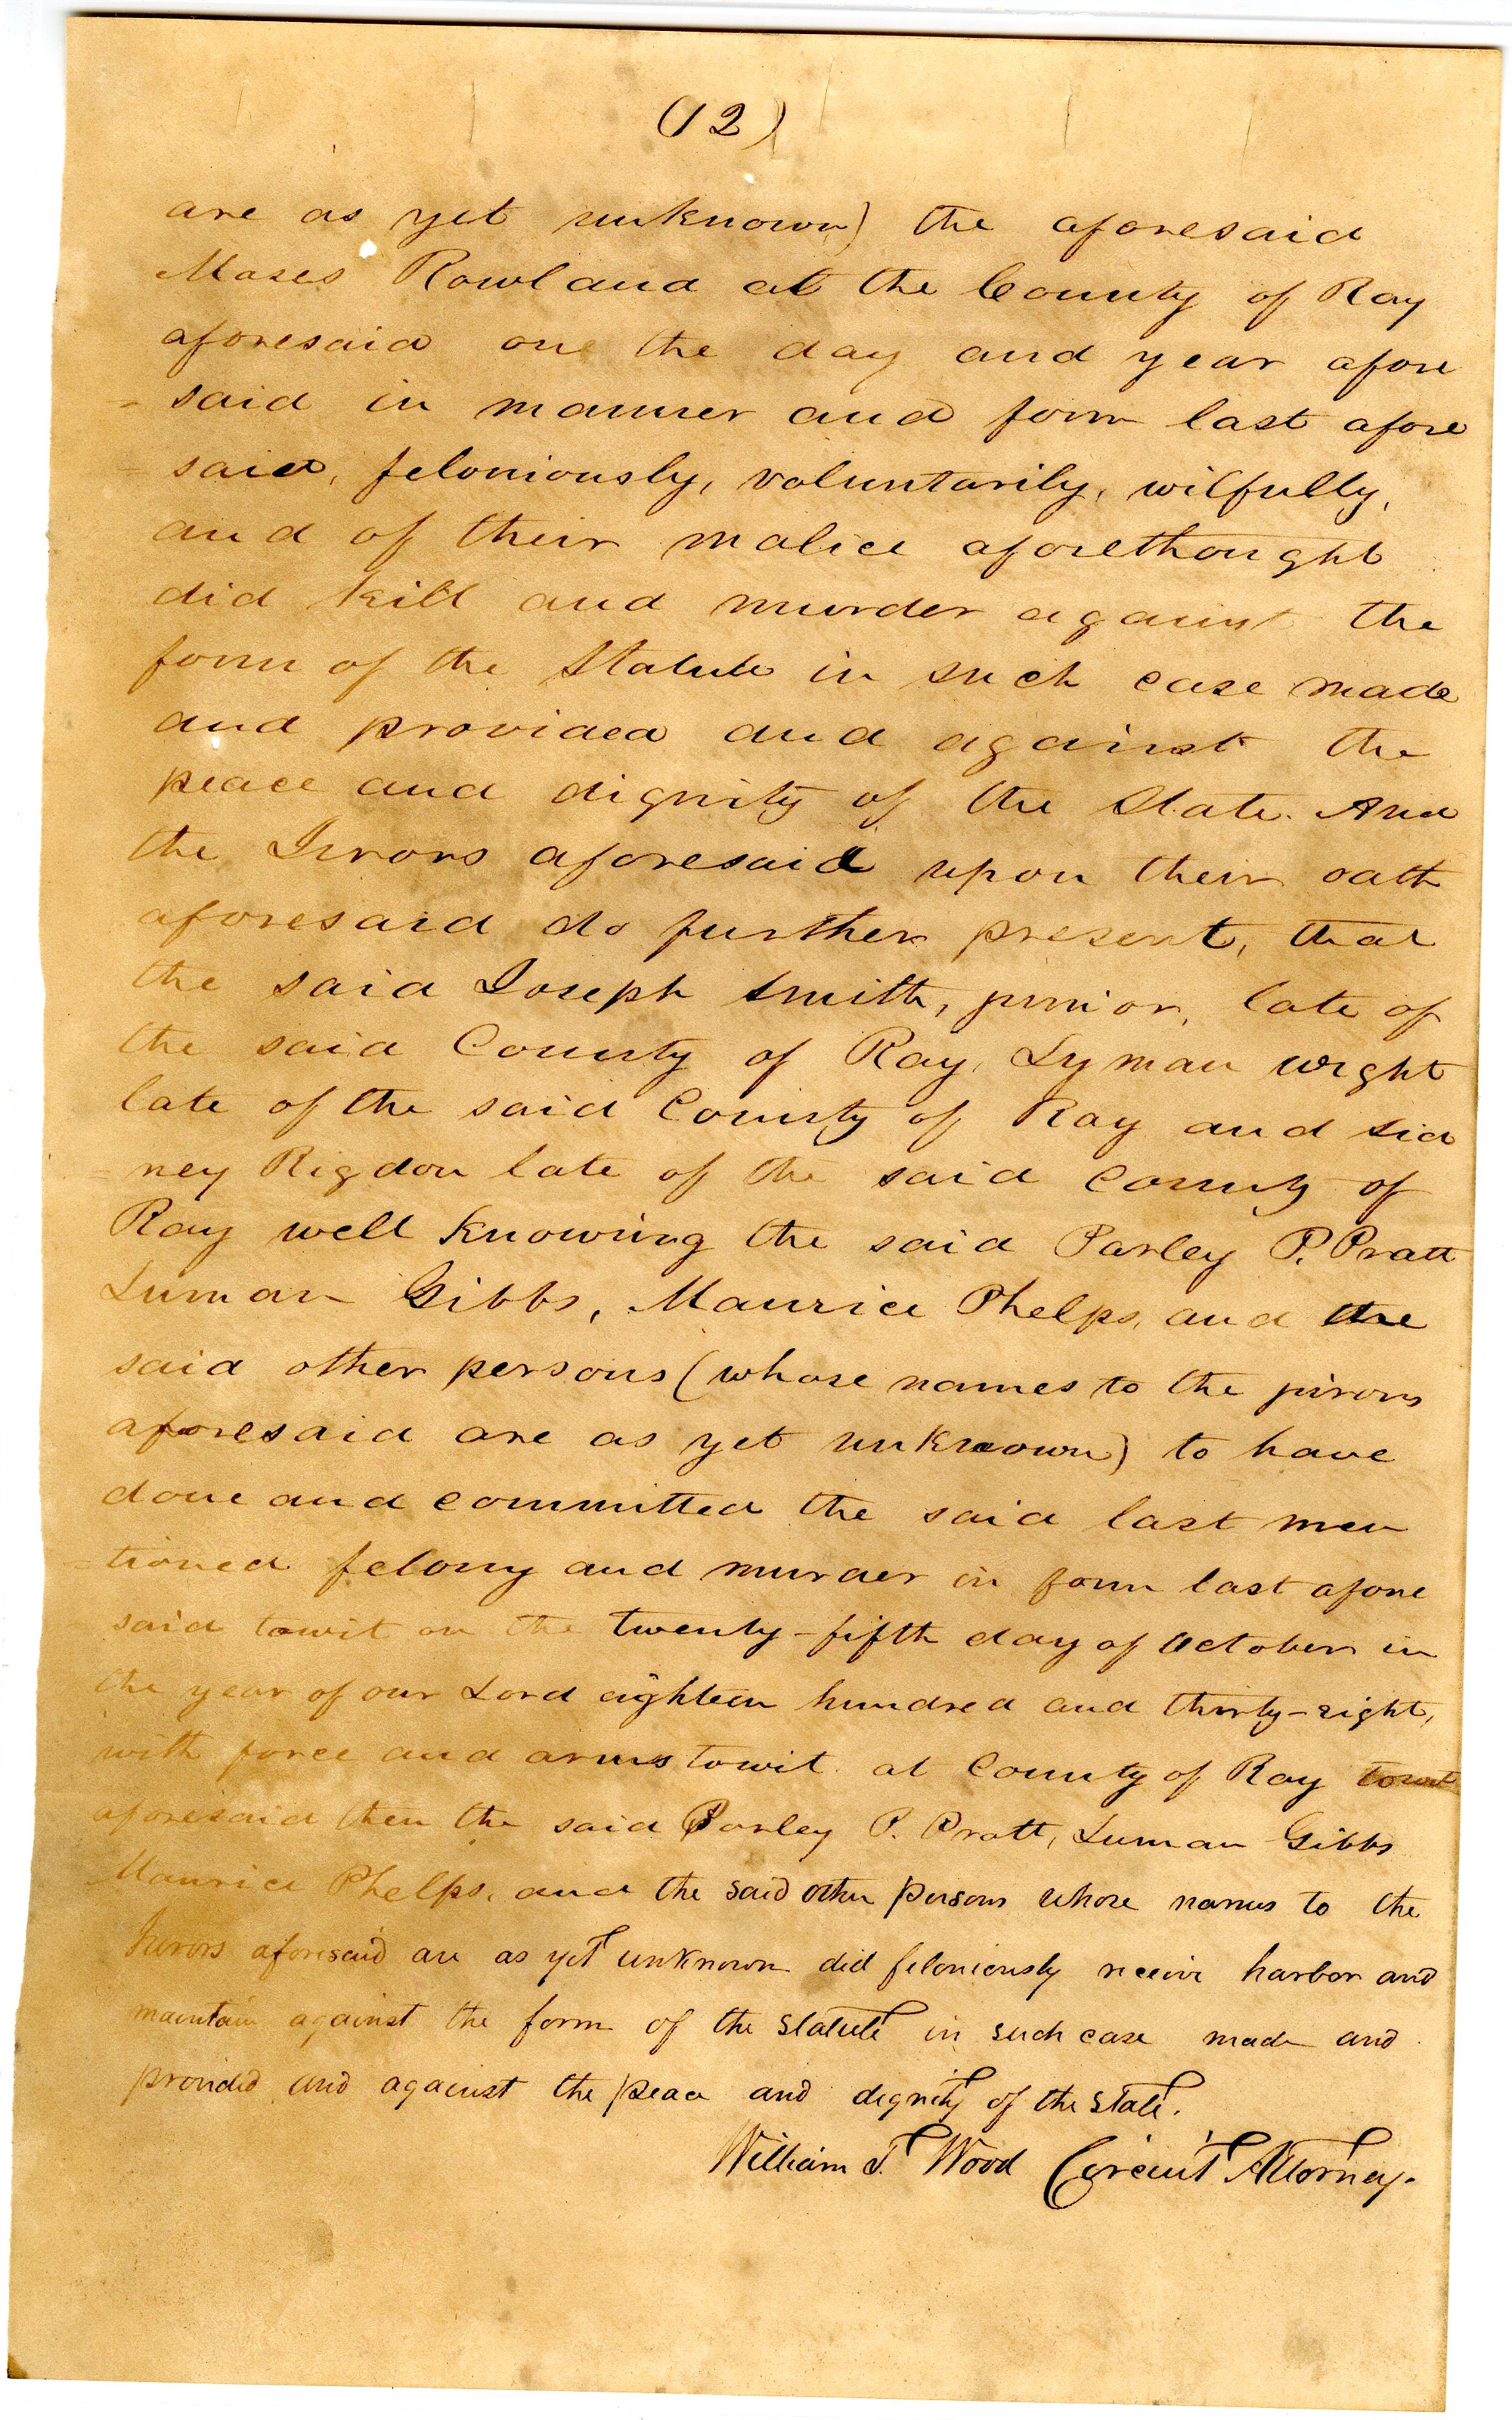 (12)
are as yet unknown) the aforesaid
Moses Rowland at the County of Ray
aforesaid one the day and year afore
= said in manner and form last afore
- said, feloniously, voluntarily, wilfully,
and of their malice aforethought
did kill and murder against the
form of the Statute in such case made
and provided and against the
peace and dignity of the State. And
the Jurors aforesaid upon their oath
aforesaid do further present, that
the said Joseph Smith, junior, late of
the said County of Ray, Lyman wight
late of the said County of Ray and Sid
= ney Rigdon late of the said County of
Ray well knowing the said Parley P. Pratt
Luman Gibbs, Maurice Phelps, and the
said other persons (whose names to the jurors
aforesaid are as yet unknown) to have
done and committed the said last men
= tioned felony and murder in form last afore
said towit on the twenty-fifth day of October in
the year of our Lord eighteen hundred and thirty-eight,
with force and arms towit at County of Ray towit
aforesaid then the said Parley P. Pratt, Luman Gibbs
Maurice Phelps, and the said other persons whose names to the
Jurors aforesaid are as yet unknown did feloniously receive harbor and
maintain against the form of the statute in such case made and
provided and against the peace and dignity of the State.
William T. Wood Circuit Attorney.